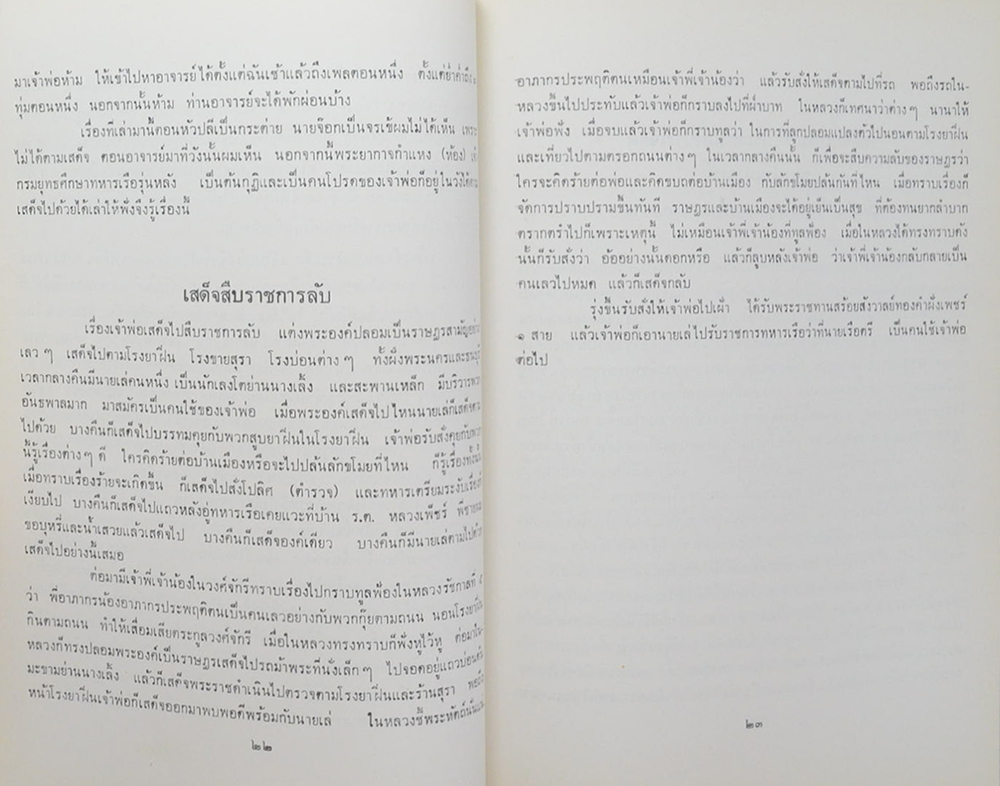 มาเจ้าพ่อห้าม ให้เข้าไปหาอาจารย์ได้ตั้งแต่ฉันเช้าแล้วถึงเพลตอนหนึ่ง ตั้งแต่ย่ำค่ำถึง
ทุ่มตอนหนึ่ง นอกจากนั้นห้าม ท่านอาจารย์จะได้พักผ่อนบ้าง
เรื่องที่เล่ามานี้ตอนหัวปลีเป็นกระต่าย นายจ๊อกเป็นจรเข้ผมไม่ได้เห็น เพราะ
ไม่ได้ตามเสด็จ ตอนอาจารย์มาที่วังนั้นผมเห็น นอกจากนี้พระยากาจกำแหง (ห้อง)
กรมยุทธศึกษาทหารเรือรุ่นหลัง เป็นต้นกุฏิและเป็นคนโปรดของเจ้าพ่อก็อยู่ในวังได้ตาม
เสด็จไปด้วยได้เล่าให้ฟังจึงรู้เรื่องนี้
เสด็จสืบราชการลับ
เรื่องเจ้าพ่อเสด็จไปสืบราชการลับ แต่งพระองค์ปลอมเป็นราษฎรสามัญอย่าง
เลว ๆ เสด็จไปตามโรงยาฝิ่น โรงขายสุรา โรงบ่อนต่าง ๆ ทั้งฝั่งพระนครและธนบุรี
เวลากลางคืนมีนายเล่คนหนึ่ง เป็นนักเลงโตย่านนางเลิ้ง และสะพานเหล็ก มีบริวารพวก
อันธพาลมาก มาสมัครเป็นคนใช้ของเจ้าพ่อ เมื่อพระองค์เสด็จไปไหนนายเล่ก็เสด็จตาม
ไปด้วย บางคืนก็เสด็จไปบรรทมคุยกับพวกสูบยาฝิ่นในโรงยาฝิ่น เจ้าพ่อรับสั่งคุยกับพวก
นี้รู้เรื่องต่าง ๆ ดี ใครคิดร้ายต่อบ้านเมืองหรือจะไปปล้นลักขโมยที่ไหน ก็รู้เรื่องทั้งนั้น
เมื่อทราบเรื่องร้ายจะเกิดขึ้น ก็เสด็จไปสั่งโปลิศ (ตำรวจ) และทหารเตรียมระงับเรื่อง
เงียบไป บางคืนก็เสด็จไปแถวหลังอู่ทหารเรือเคยแวะที่บ้าน ร.ต. หลวงเพ็ชร์
ขอบุหรี่และน้ำเสวยแล้วเสด็จไป บางคืนก็เสด็จองค์เดียว บางคืนก็มีนายเล่ตามไปด้วย
เสด็จไปอย่างนี้เสมอ
ต่อมามีเจ้าพี่เจ้าน้องในวงศ์จักรีทราบเรื่องไปกราบทูลฟ้องในหลวงรัชกาลที่
ว่า พี่อาภากรน้องอาภากรประพฤติตนเป็นคนเลวอย่างกับพวกกุ๊ยตามถนน นอนโรงยาฝิ่น
กินตามถนน ทำให้เสื่อมเสียตระกูลวงศ์จักรี เมื่อในหลวงทรงทราบก็ฟังหูไว้หู ต่อมาใน
หลวงก็ทรงปลอมพระองค์เป็นราษฎรเสด็จไปรถม้าพระที่นั่งเล็ก ๆ ไปจอดอยู่แถวบ่อนต้น
มะขามย่านนางเลิ้ง แล้วก็เสด็จพระราชดำเนินไปตรวจตามโรงยาฝิ่นและร้านสุรา พอถึง
หน้าโรงยาฝิ่นเจ้าพ่อก็เสด็จออกมาพบพอดีพร้อมกับนายเล่ ในหลวงชี้พระหัตถ์
๒๒
อาภากรประพฤติตนเหมือนเจ้าพี่เจ้าน้องว่า แล้วรับสั่งให้เสด็จตามไปที่รถ พอถึงรถใน-
หลวงขึ้นไปประทับแล้วเจ้าพ่อก็กราบลงไปที่ฝ่าบาท ในหลวงก็เทศนาว่าต่าง ๆ นานาให้
เจ้าพ่อฟัง เมื่อจบแล้วเจ้าพ่อก็กราบทูลว่า ในการที่ลูกปลอมแปลงตัวไปนอนตามโรงยาฝิ่น
และเที่ยวไปตามตรอกถนนต่าง ๆ ในเวลากลางคืนนั้น ก็เพื่อจะสืบความลับของราษฎรว่า
ใครจะคิดร้ายต่อพ่อและคิดขบถต่อบ้านเมือง กับลักขโมยปล้นกันที่ไหน เมื่อทราบเรื่องก็
จัดการปราบปรามขึ้นทันที ราษฎรและบ้านเมืองจะได้อยู่เย็นเป็นสุข ที่ต้องทนยากลำบาก
ตรากตรำไปก็เพราะเหตุนี้ ไม่เหมือนเจ้าพี่เจ้าน้องที่ทูลฟ้อง เมื่อในหลวงได้ทรงทราบดัง
นั้นก็รับสั่งว่า อ้ออย่างนั้นดอกหรือ แล้วก็ลูบหลังเจ้าพ่อ ว่าเจ้าพี่เจ้าน้องกลับกลายเป็น
คนเลวไปหมด แล้วก็เสด็จกลับ
รุ่งขึ้นรับสั่งให้เจ้าพ่อไปเฝ้า ได้รับพระราชทานสร้อยสังวาลย์ทองคำฝังเพชร์
๑ สาย แล้วเจ้าพ่อก็เอานายเล่ไปรับราชการทหารเรือว่าที่นายเรือตรี เป็นคนใช้เจ้าพ่อ
ต่อไป
๒๓